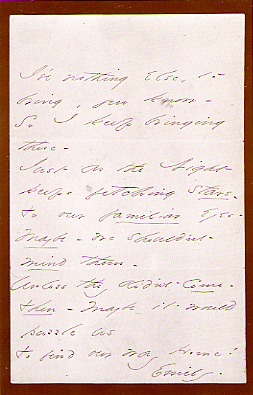 I've nothing Else, to
bring, you know -
So I keep bringing
these -
Just as the Night
keeps fetching Stars.
to our familiar eyes -
Maybe - we shouldn't
mind them -
Unless they didn't come -
then - Maybe it would
puzzle us
to find our way home!
Emily.